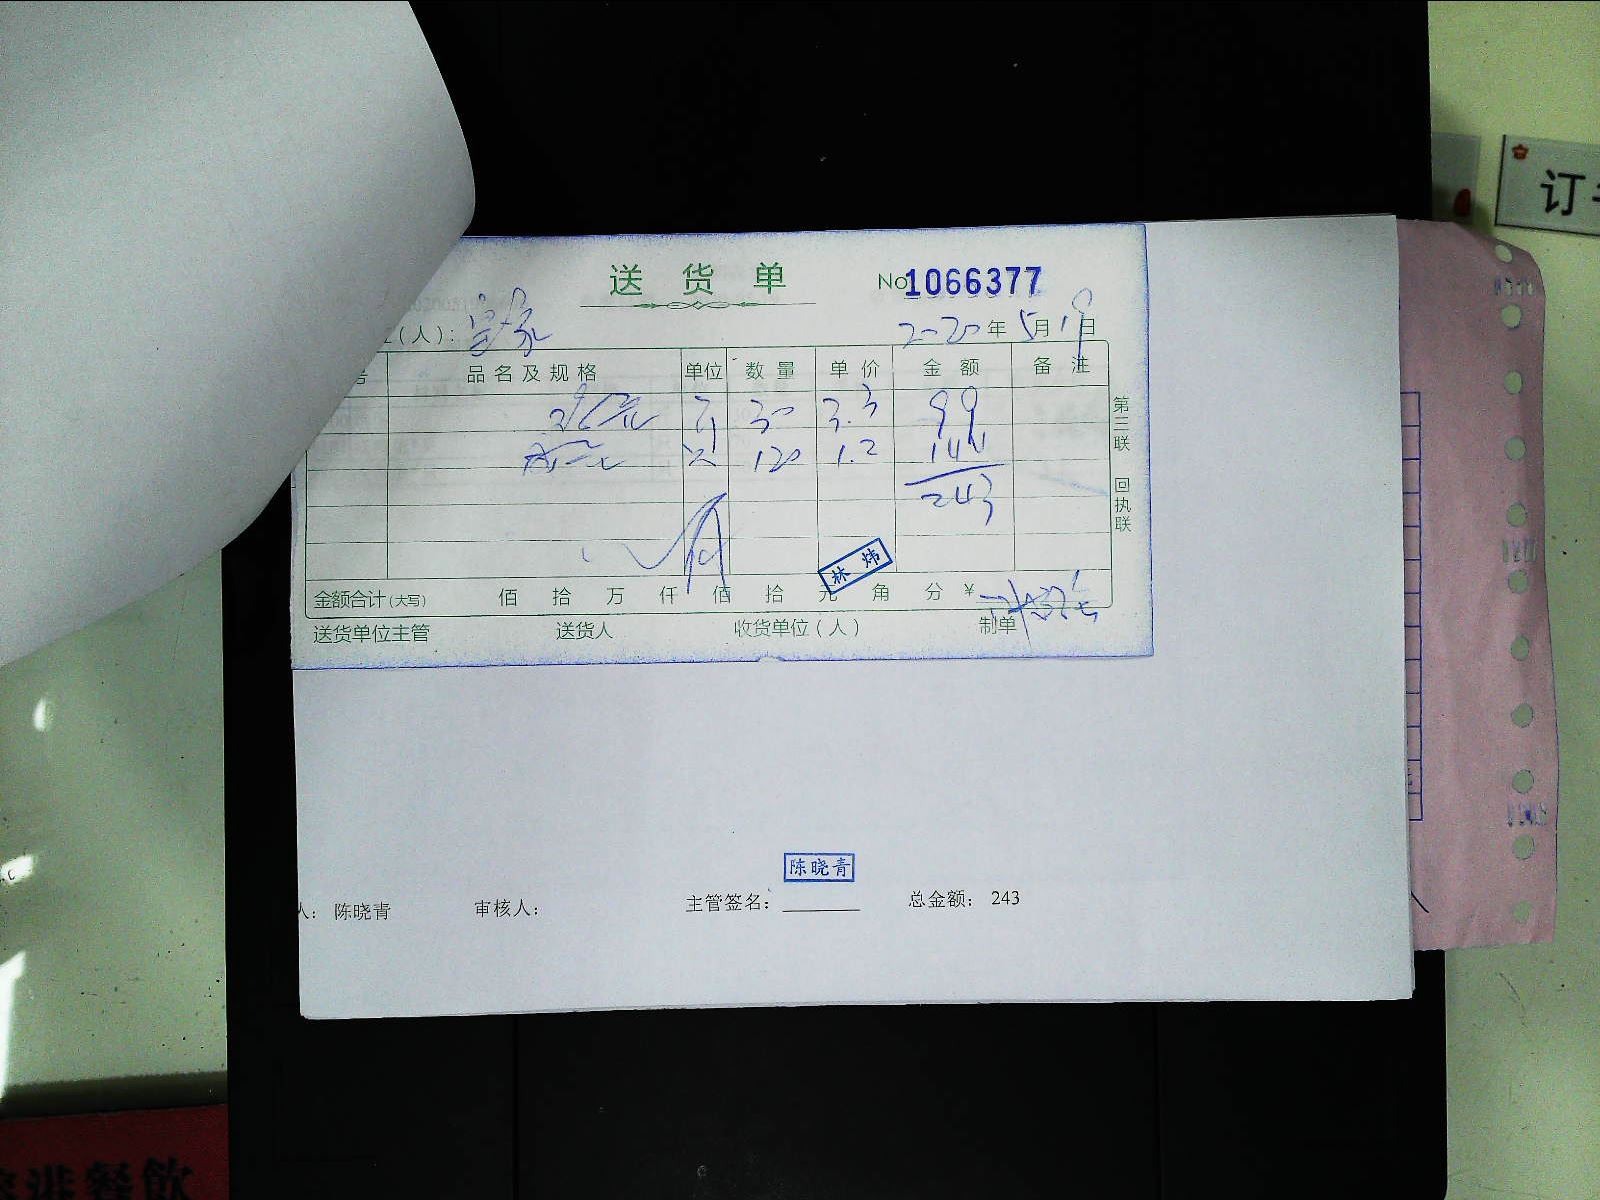 订
送货单
No1066377
(人):
2020年5月19日
品名及规格 单位 数量 单价 金额 备注
30 3.3 99
只 120 1.2 144
243
第三联 回执联
林炜
金额合计(大写) 佰 拾 万 仟 佰 拾 元 角 分 ¥
送货单位主管 送货人 收货单位(人) 制单
陈晓青
人: 陈晓青 审核人: 主管签名: 总金额: 243
餐飲